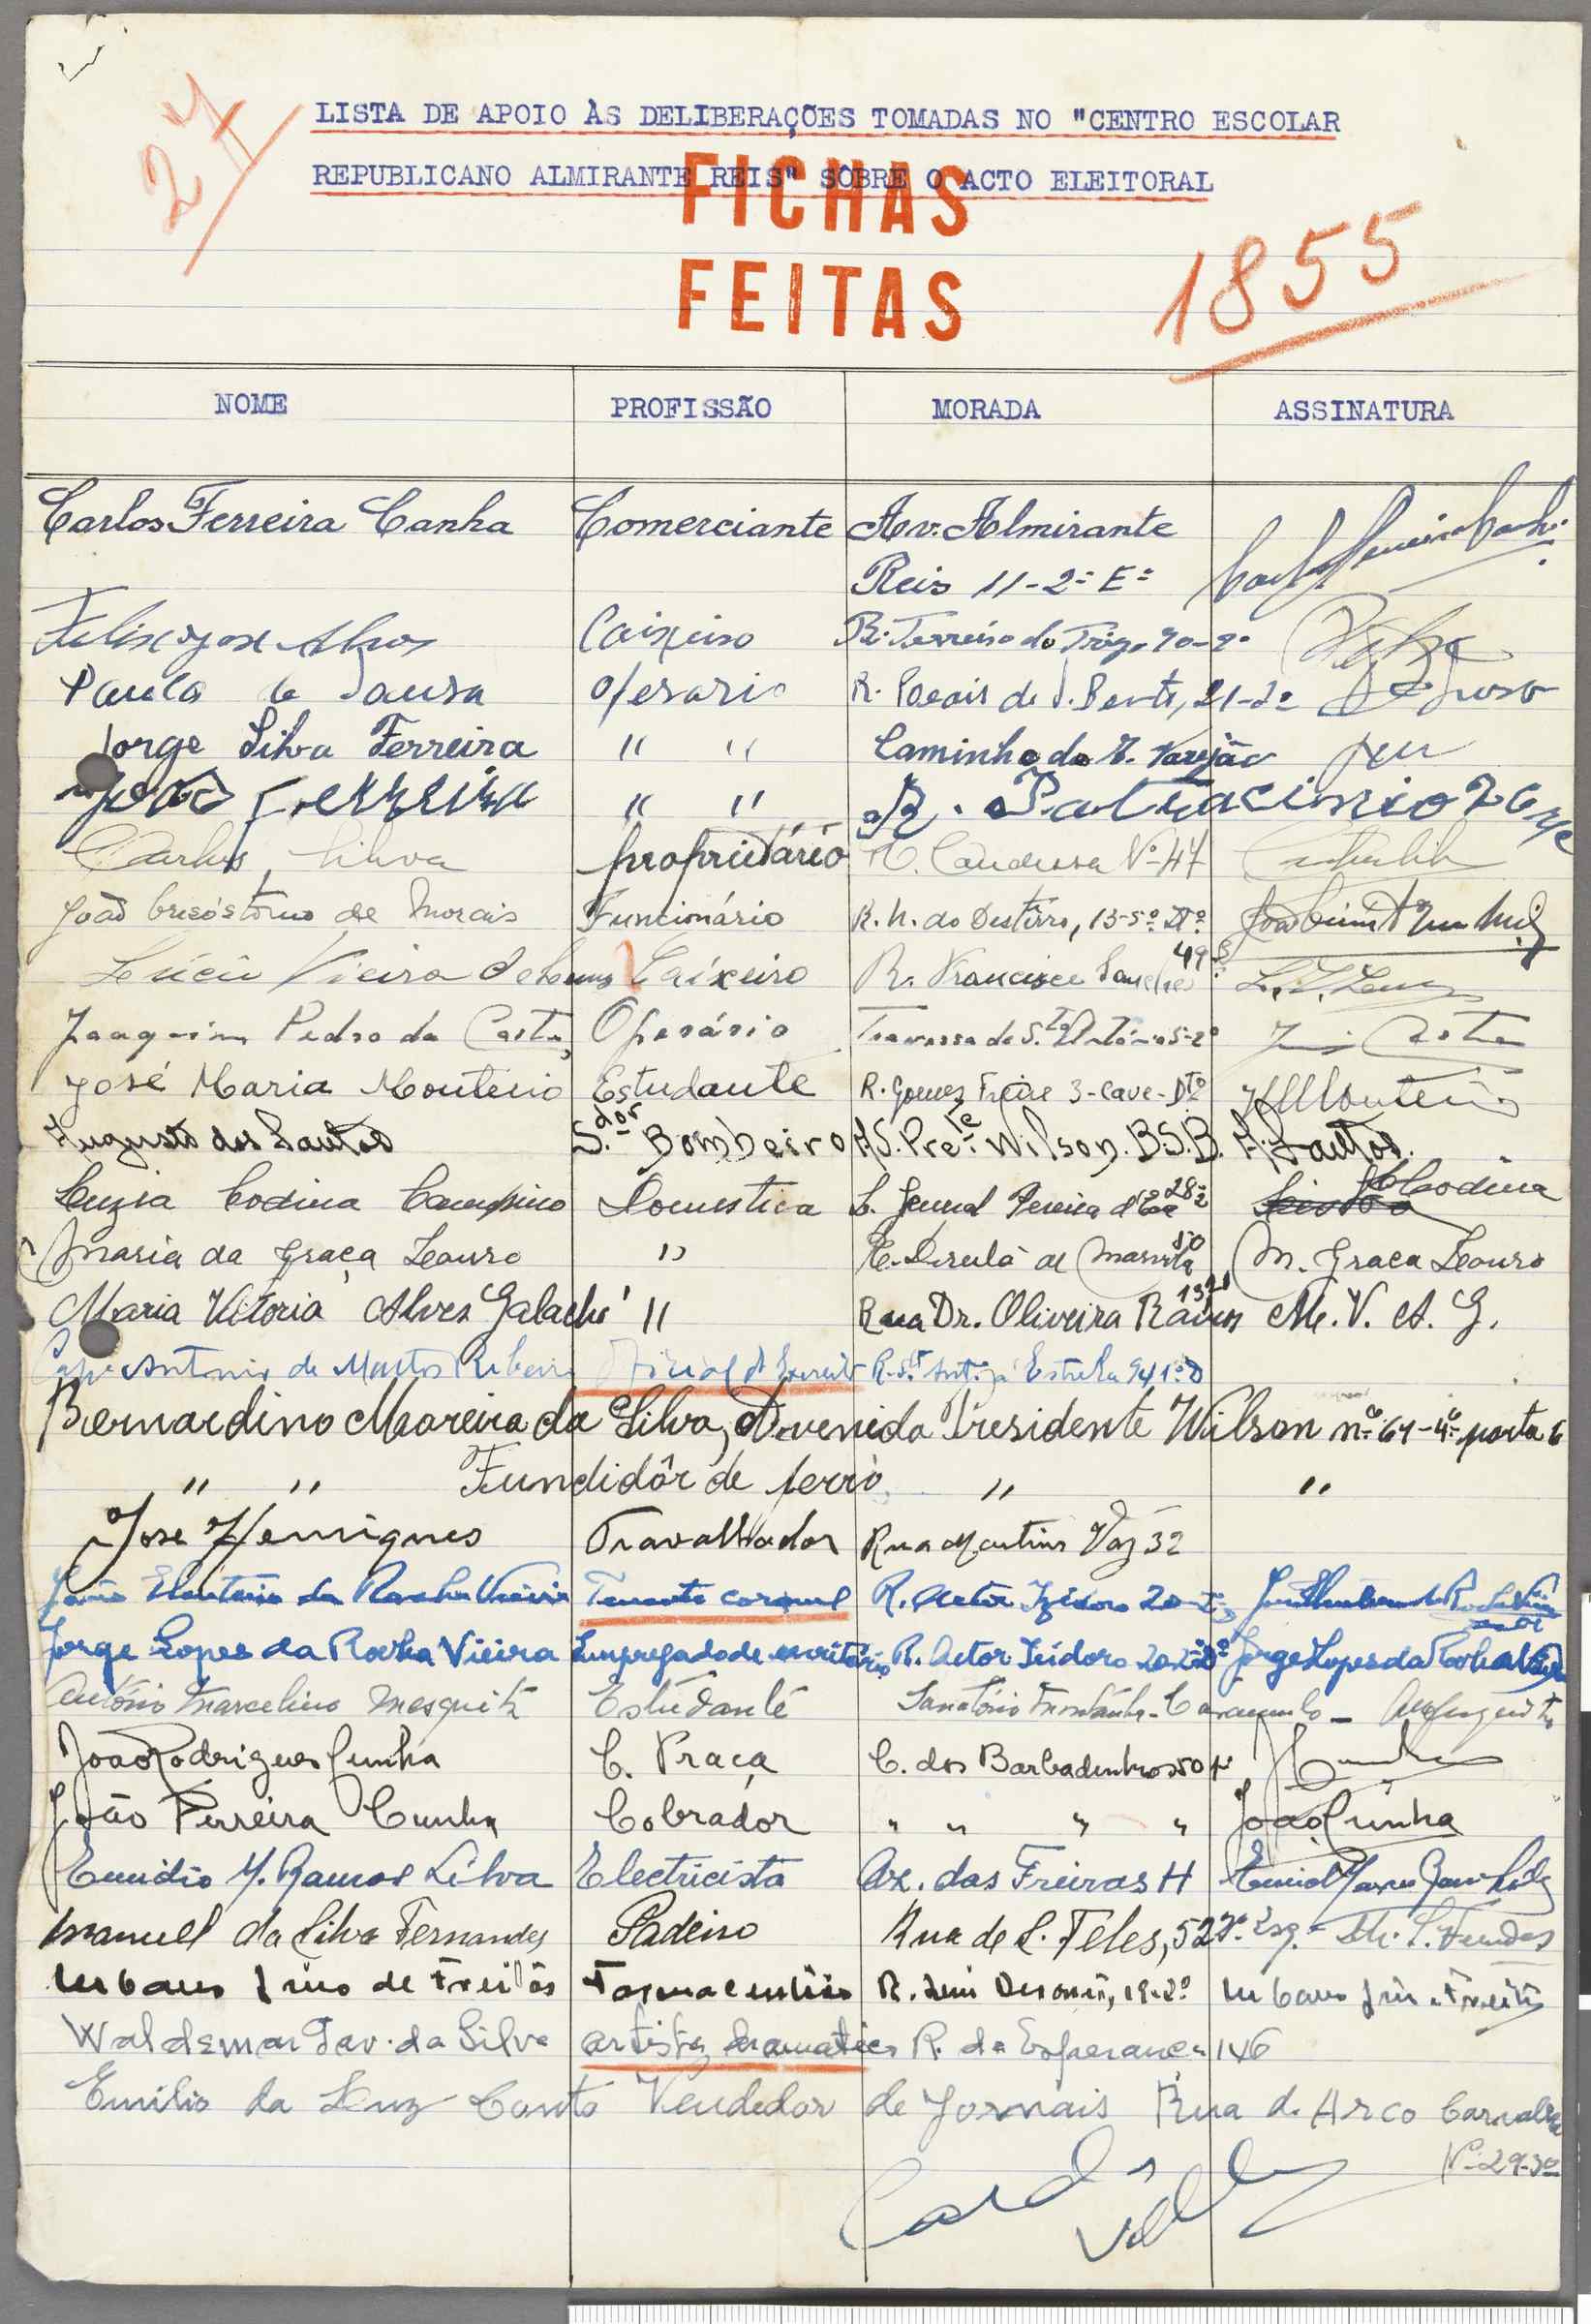 27
LISTA DE APOIO ÀS DELIBERAÇÕES TOMADAS NO "CENTRO ESCOLAR
REPUBLICANO ALMIRANTE REIS" SÔBRE O ACTO ELEITORAL
FICHAS
FEITAS
1855
NOME PROFISSÃO MORADA ASSINATURA
Carlos Ferreira Canha Comerciante Av. Almirante
Reis 11-2º Eº
Felix José Alves Caixeiro R. Terreiro do Trigo
Paulo de Sousa Operario R. Poeais de S. Bento, 21-2º
Jorge Silva Ferreira " " Caminho da Varejão
João Ferreira " " R. Patrocinio
Carlos Silva proprietário Nº 47
João Crisóstomo de Morais Funcionário R. N. do Destêrro, 13-5º Dtº
Lúcio Vieira de Lemos Caixeiro R. Francisco Sanches 49
Joaquim Pedro da Costa Operário Travessa de S.to António 5-2º Costa
José Maria Monteiro Estudante R. Gomes Freire 3-Cave-Dtº JMMonteiro
Augusto dos Santos S.dor Bombeiro A. Pre.te Wilson. B.S.B. A. Santos.
Luzia Codina Campino Domestica L. General Pereira d'Eça 28-2 Codina
Maria da Graça Louro " 50 M. Graça Louro
Maria Vitoria Alves Galache " Rua Dr. Oliveira Ramos M. V. A. G.
Antonio de Mattos Ribeiro Oficial d'Exercito R. Stº Antº à Estrela 94 1º D
Bernardino Moreira da Silva, Avenida Presidente Wilson nº 64-4º porta 6
" " Fundidôr de ferro " "
José Henriques Travalhador Rua Martins Vaz 32
João Eleuterio da Rocha Vieira Tenente coronel R. Actor Izidoro 20-2º
Jorge Lopes da Rocha Vieira Empregado de escritório R. Actor Isidoro 20-2º Dº Jorge Lopes da Rocha Vieira
António Marcelino Mesquita Estudante Sanatório Montanha - Caramulo -
João Rodrigues Cunha C. Praça C. dos Barbadinhos 50 JCunha
João Ferreira Cunha Cobrador " " " " João Cunha
Emidio Y. Ramos Silva Electricista Az. das Freiras H
Manuel da Silva Fernandes Padeiro Rua de S. Teles, 52 2º Esq. M. S. Fernandes
Urbano Lino de Freitas Farmaceutico R. Luis Derouet, 19-2º Urbano Lino Freitas
Waldemar Tav. da Silva artista dramatico R. da Esperança 146
Emilio da Luz Couto Vendedor de Jornais Rua do Arco Carvalhão
Nº 29-3º